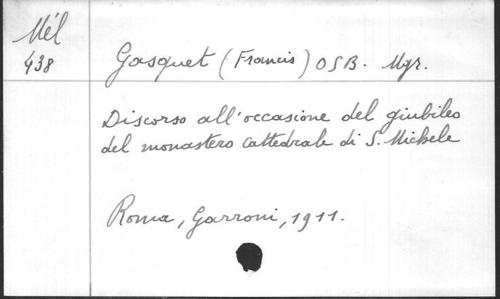 Mél
438
Gasquet (Francis) OSB. Mgr.
Discorso all'occasione del giubileo
del monastero cattedrale di S. Michele
Roma, Garroni, 1911.